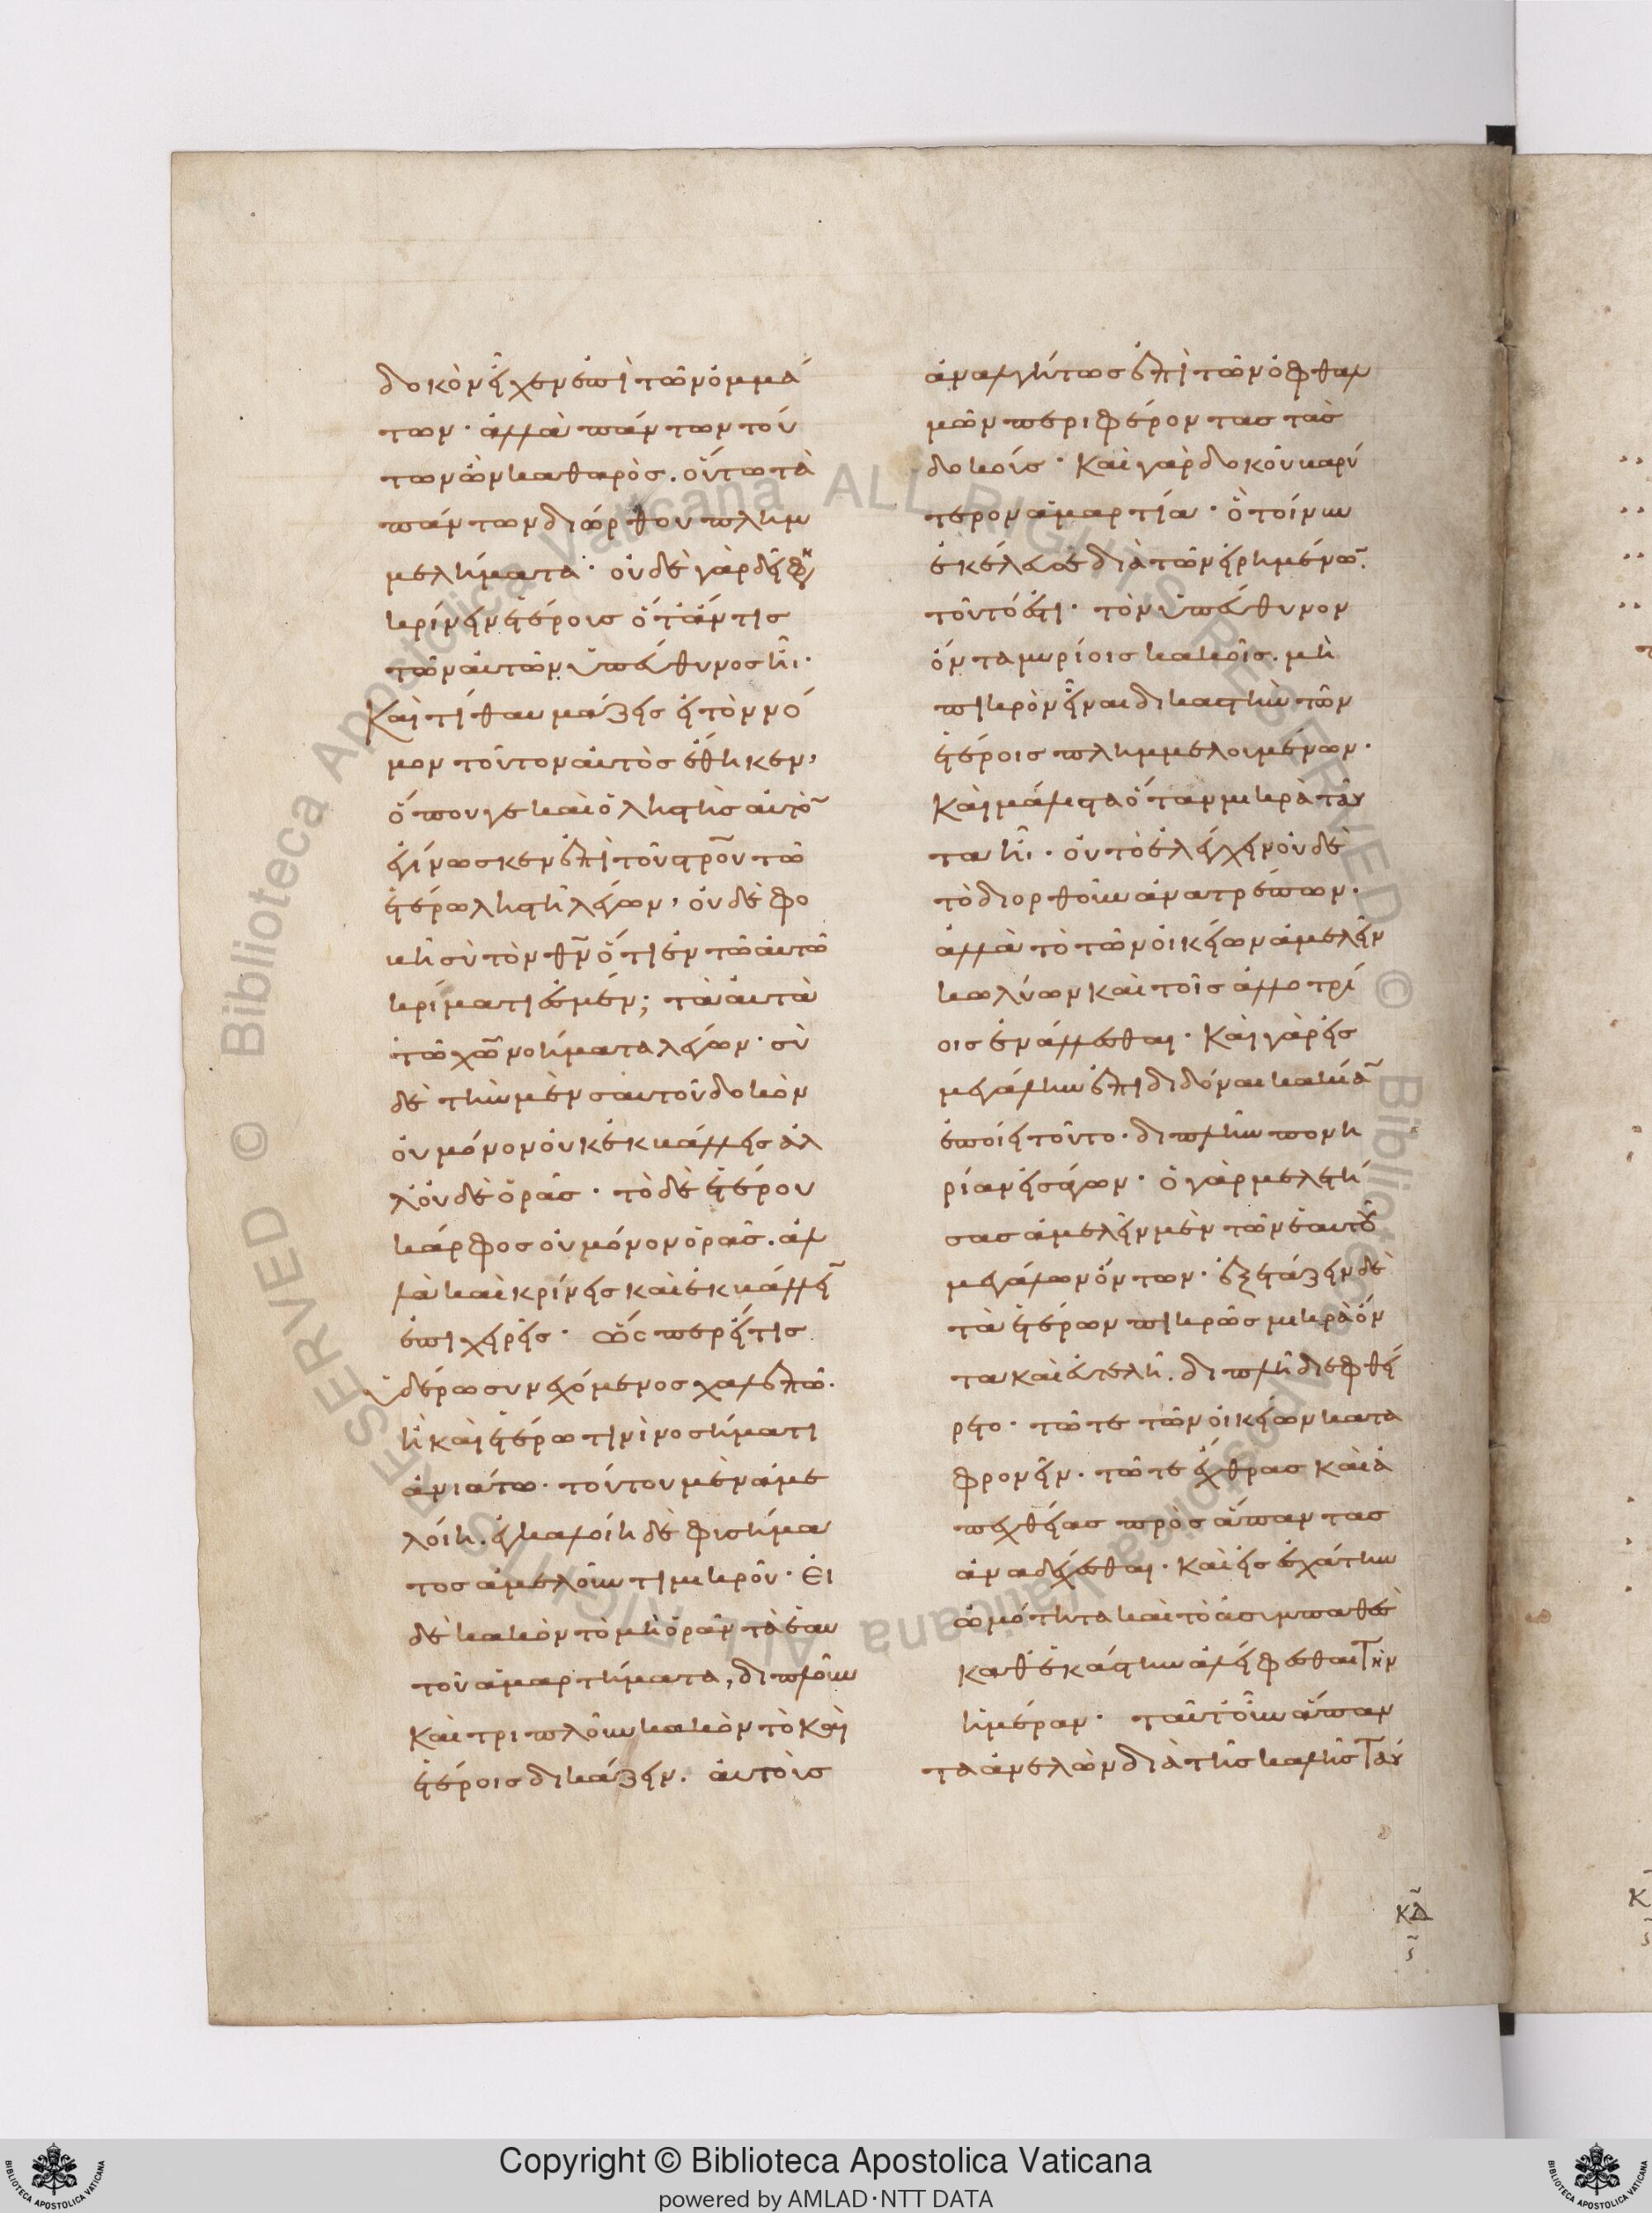 δοκὸν εἶχεν ἐπὶ τῶν ὀμμά
των· ἀλλὰ πάντων τού
των ὢν καθαρὸς. οὕτω τὰ
πάντων διώρθου πλημ
μελήματα· οὐδὲ γὰρ δεῖ φη
κρίνειν ἑτέροις ὅταν τις
τῶν αὐτῶν ὑπεύθυνος ῆι·
Καὶ τί θαυμάζεις εἰ τὸν νό
μον τοῦτον αὐτὸς ἔθηκεν,
ὅπου γε καὶ ὁ ληστὴς αὐτὸ
ἐγίνωσκεν ἐπὶ τοῦ σροῦ τῶ
ἑτέρω ληστῆ λέγων, οὐδὲ φο
βῆ σὺ τὸν θν ὅτι ἐν τῶ αὐτῶ
κρίματι ἐσμέν; τὰ αὐτὰ
τῶ χω νοήματα λέγων· σὺ
δὲ τὴν μὲν σαυτοῦ δοκὸν
οὐ μόνον οὐκ ἐκβάλλεις ἀλ
λ' οὐδὲ ὁρᾶς· τὸ δὲ ἑτέρου
κάρφος οὐ μόνον ὁρᾶς. ἀλ
λὰ καὶ κρίνεις καὶ ἐκβάλλει
ἐπιχειρεῖς· ὥσπερ εἴ τις
ὑδέρω συνεχόμενος χαλεπῶ.
ἢ καὶ ἑτέρω τινὶ νοσήματι
ἀνιάτω· τούτου μὲν ἀμε
λοίη. ἐγκαλοίη δὲ φισήμα
τος ἀμελοῦντι μικροῦ· Εἰ
δὲ κακὸν τὸ μὴ ὁρᾶν τὰ ἑαυ
τοῦ ἁμαρτήματα, διπλοῦν
καὶ τριπλοῦν κακὸν τὸ καὶ
ἑτέροις δικάζειν. αὐτοὺς
ἀναλγήτως ἐπὶ τῶν ὀφθαλ
μῶν περιφέροντας τὰς
δοκούς· Καὶ γὰρ δοκοῦ βαρύ
τερον ἁμαρτία· ὃ τοίνυν
ἐκέλευσε διὰ τῶν εἰρημένω.
τοῦτό ἐστι· τὸν ὑπεύθυνον
ὄντα μυρίοις κακοῖς. μὴ
πικρὸν εἶναι δικαστὴν τῶν
ἑτέροις πλημμελουμένων·
Καὶ μάλιστα ὅταν μικρὰ ταῦ
τα ῆι· οὐ τὸ ἐλέγχειν οὐδὲ
τὸ διορθοῦν ἀνατρέπων.
ἀλλὰ τὸ τῶν οἰκείων ἀμελεῖν
κωλύων καὶ τοῖς ἀλλοτρί
οις ἐνάλλεσθαι· Καὶ γὰρ εἰς
μεγάλην ἐπιδιδόναι κακία
ἐποίει τοῦτο· διπλῆν πονη
ρίαν εἰσάγων· ὁ γὰρ μελετή
σας ἀμελεῖν μὲν τῶν ἑαυτοῦ
μεγάλων ὄντων· ἐξετάζειν δὲ
τὰ ἑτέρων πικρῶς μικρὰ ὄν
τα καὶ εὐτελῆ. διπλῆ διεφθεί
ρετο· τῶ τε τῶν οἰκείων κατα
φρονεῖν. τῶ τε ἔχθρας καὶ ἀ
πεχθείας πρὸς ἅπαντας
ἀναδέχεσθαι. καὶ εἰς ἐσχάτην
ὠμότητα καὶ τὸ ἀσυμπαθὲς
καθ' ἑκάστην ἀλείφεσθαι τὴν
ἡμέραν· ταῦτ' οὖν ἅπαν
τα ἀνελὼν διὰ τῆς καλῆς ταύ
ΚΔ
ς
Copyright © Biblioteca Apostolica Vaticana
powered by AMLAD·NTT DATA